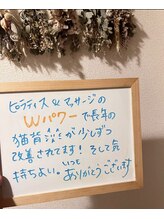 ピラティス&マッサージの
Wパワーで長年の
猫背が少しずつ
改善されてます!そして気
持ちよい。いつも
ありがとうございます